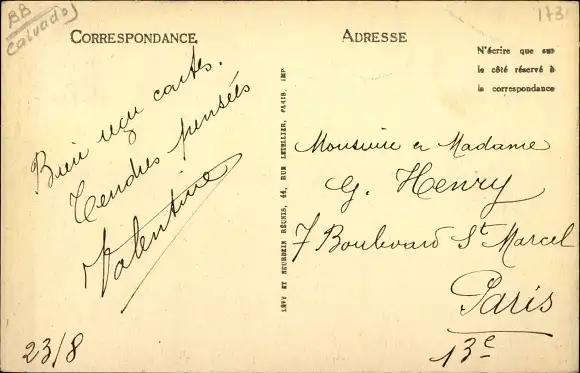 BB
Calvados
173
CORRESPONDANCE
ADRESSE
N'écrire que sur
le côté réservé à
la correspondance
Bien reçu cartes.
Tendres pensées
Valentine
23/8
LÉVY ET NEURDEIN RÉUNIS, 44, RUE LETELLIER, PARIS, IMP
Monsieur et Madame
G. Henry
7 Boulevard St Marcel
Paris
13e